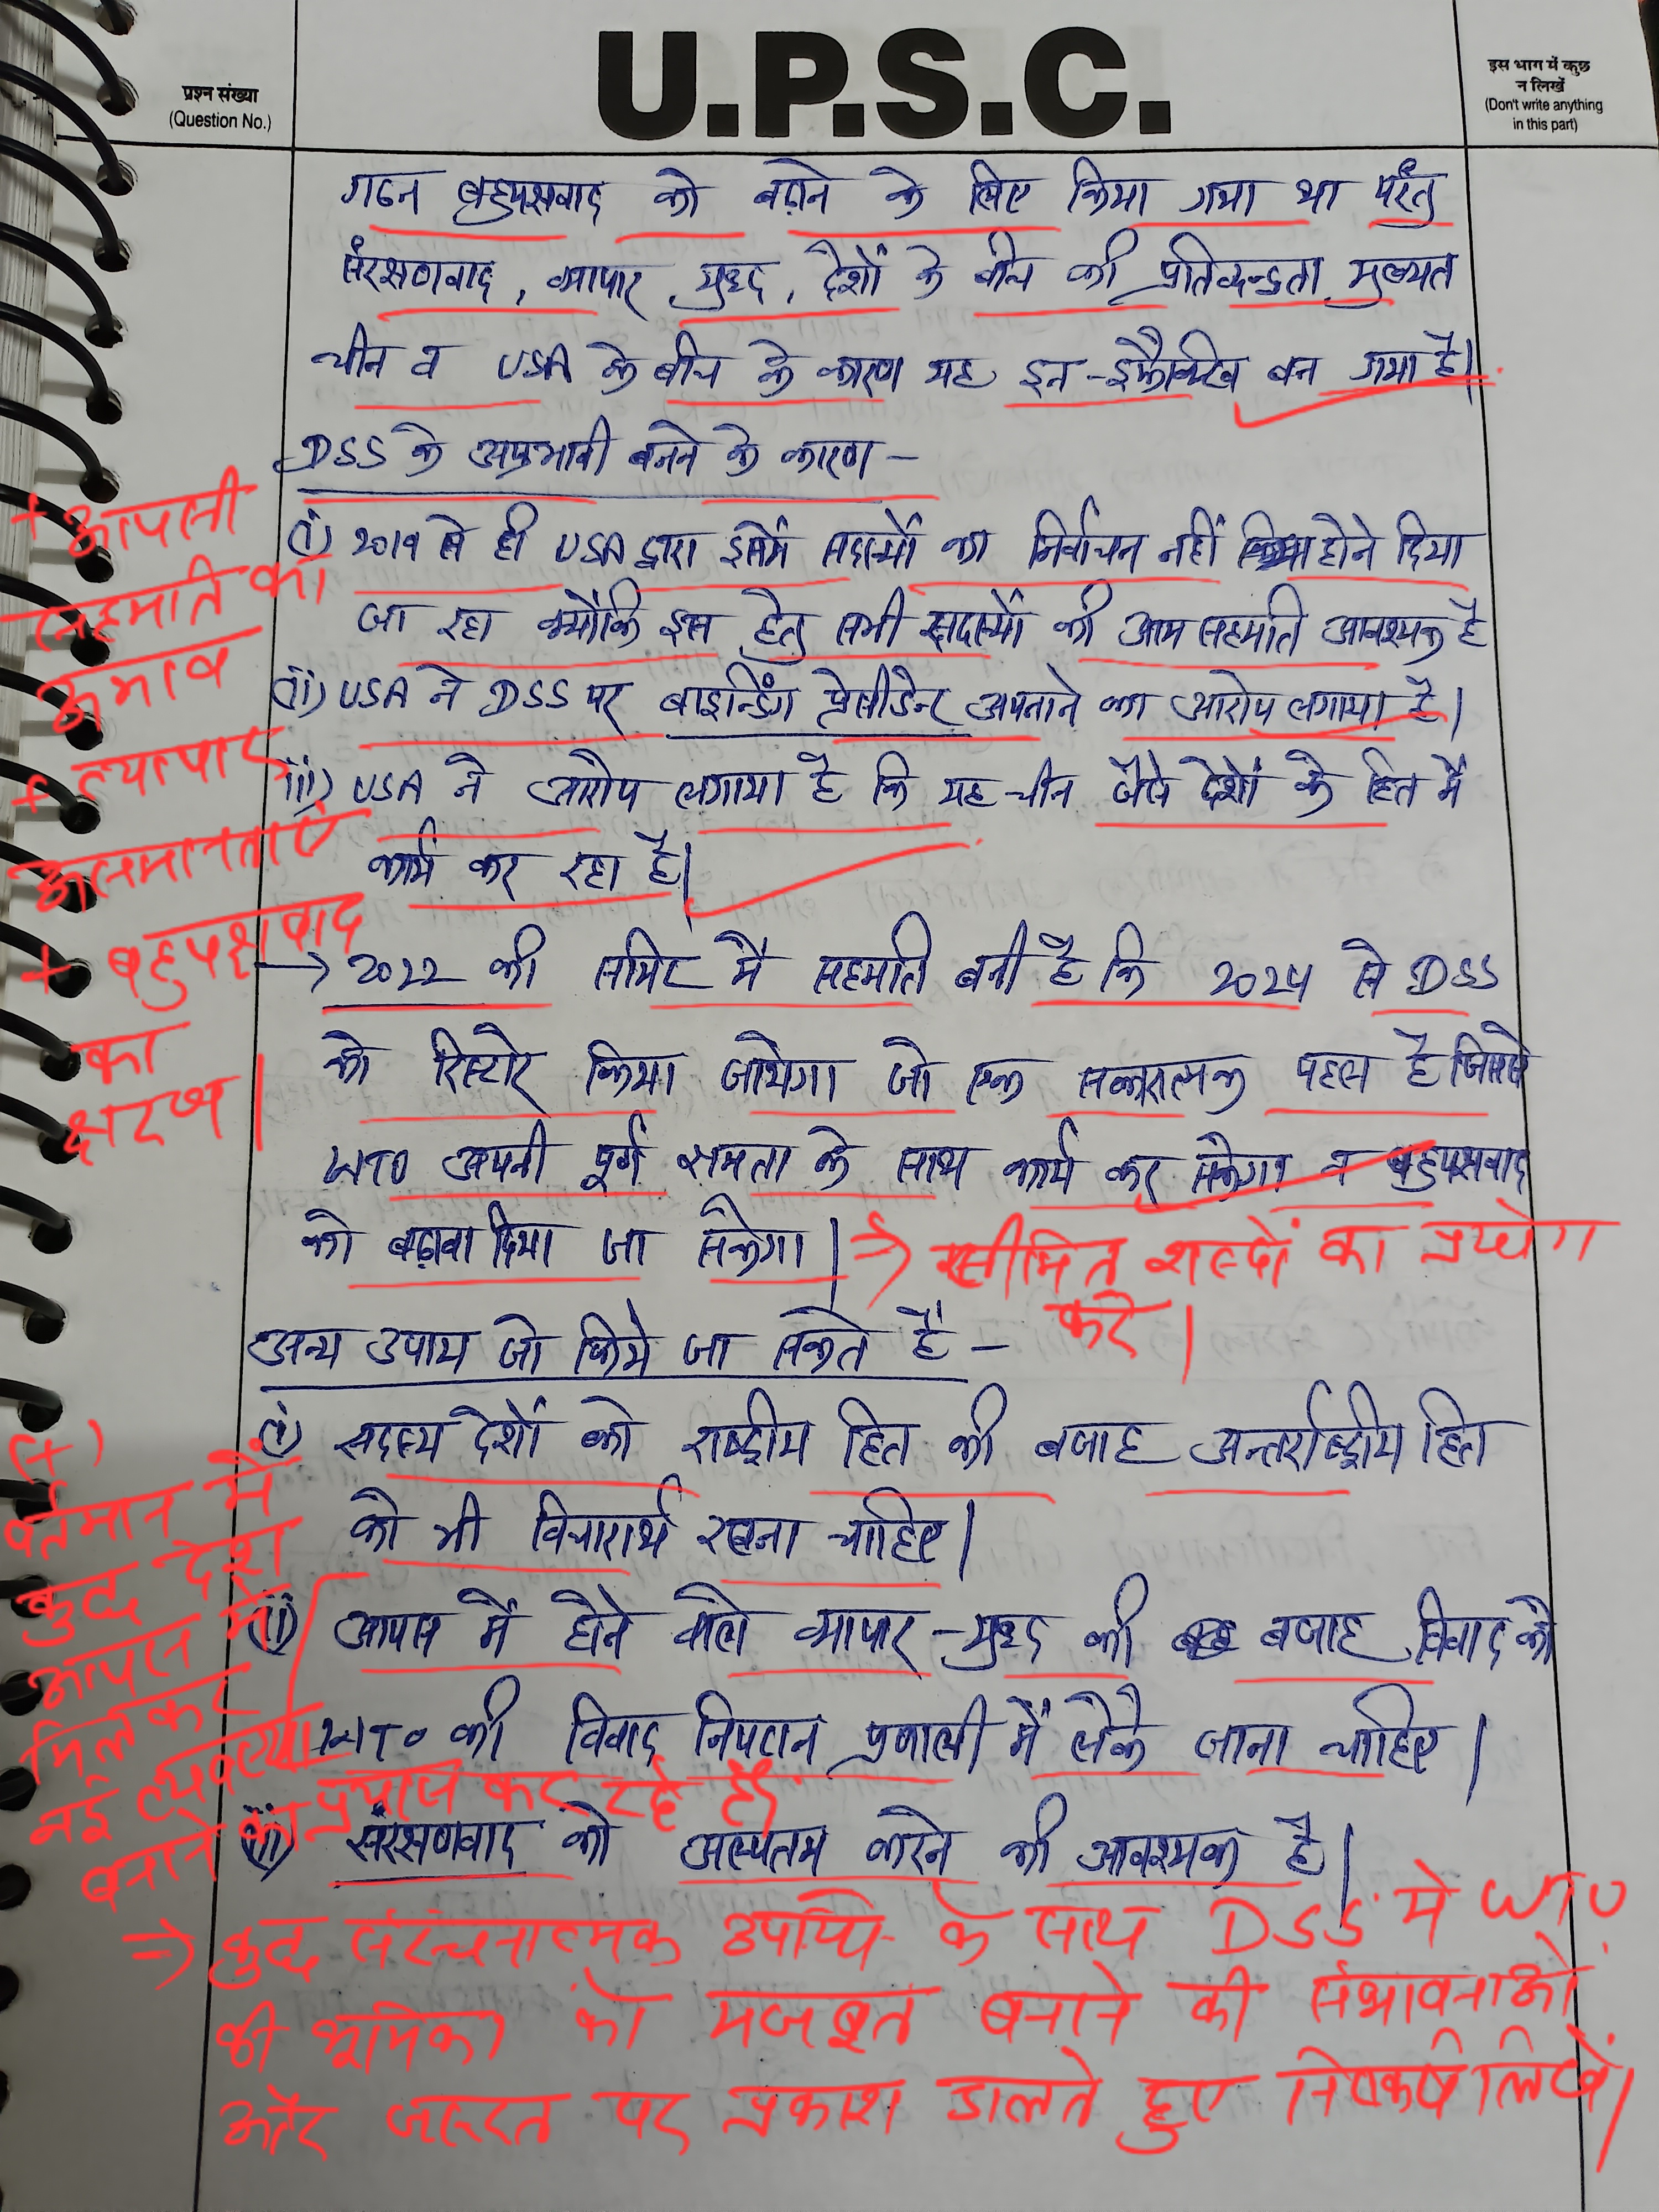 प्रश्न संख्या
(Question No.)
U.P.S.C.
इस भाग में कुछ
न लिखें
(Don't write anything
in this part)
गठन बहुपक्षवाद को बढ़ाने के लिए किया गया था परंतु
संरक्षणवाद, व्यापार युध्द, देशों के बीच की प्रतिद्वन्द्वता मुख्यत
चीन व USA के बीच के कारण यह इन-इफैक्टिव बन गया है।
DSS के अप्रभावी बनने के कारण –
(i) 2019 से ही USA द्वारा इसमें सदस्यों का निर्वाचन नहीं होने दिया
जा रहा क्योंकि इस हेतु सभी सदस्यों की आम सहमति आवश्यक है
(ii) USA ने DSS पर बाइन्डिंग प्रेसीडेन्ट अपनाने का आरोप लगाया है।
(iii) USA ने आरोप लगाया है कि यह चीन जैसे देशों के हित में
कार्य कर रहा है।
+ आपसी
सहमति का
अभाव
+ व्यापार
असमानताएं
+ बहुपक्षवाद
का
क्षरण।
→ 2022 की समिट में सहमति बनी है कि 2024 से DSS
को रिस्टोर किया जायेगा जो एक सकारात्मक पहल है जिससे
WTO अपनी पूर्ण क्षमता के साथ कार्य कर सकेगा व बहुपक्षवाद
को बढ़ावा दिया जा सकेगा।
⇒ सीमित शब्दों का प्रयोग
करें।
अन्य उपाय जो किये जा सकते है –
(i) सदस्य देशों को राष्ट्रीय हित की बजाह अन्तर्राष्ट्रीय हित
को भी विचारार्थ रखना चाहिए।
(ii) आपस में होने वाले व्यापार-युध्द की बजाह विवाद को
WTO की विवाद निपटान प्रणाली में लेके जाना चाहिए।
(iii) संरक्षणवाद को अल्पतम करने की आवश्यक है।
(+)
वर्तमान में
कुछ देश
आपस में
मिलकर
नई व्यवस्था
बनाने का प्रयास कर रहे हैं।
⇒ कुछ संरचनात्मक उपायों के साथ DSS में WTO
की भूमिका को मजबूत बनाने की संभावनाओं
और जरूरत पर प्रकाश डालते हुए निष्कर्ष लिखें।